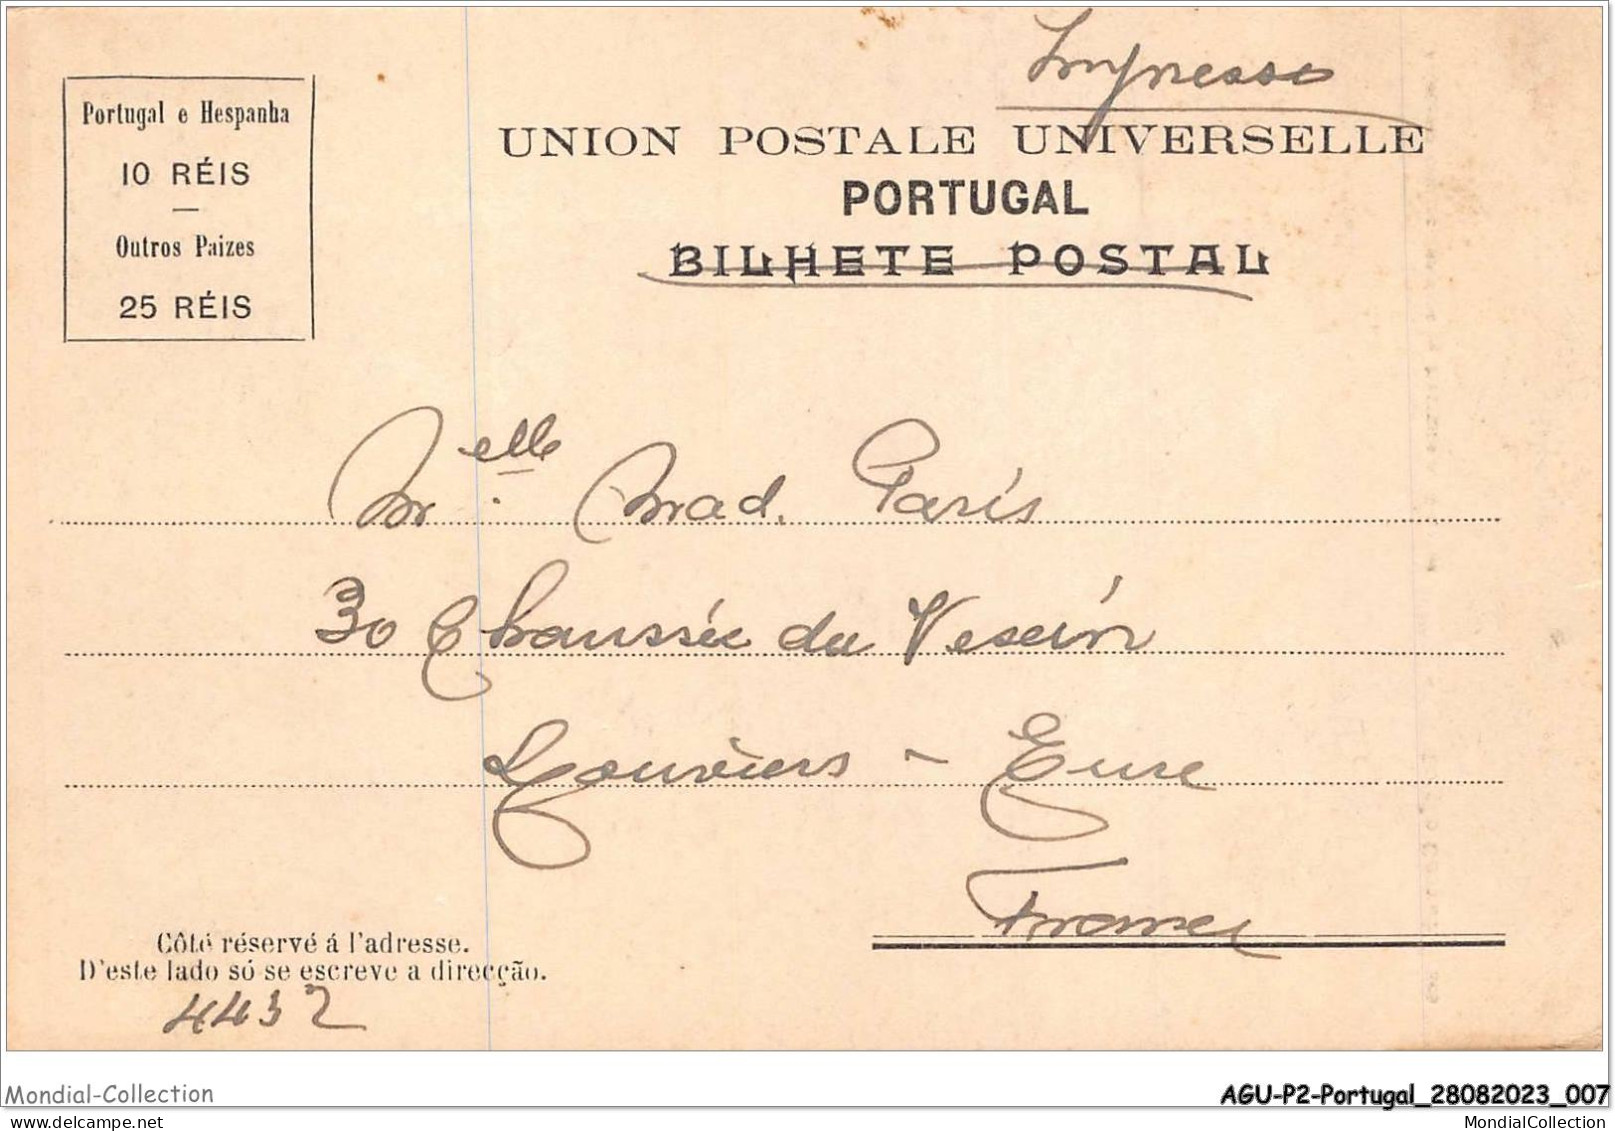 Impresso
UNION POSTALE UNIVERSELLE
PORTUGAL
BILHETE POSTAL
Portugal e Hespanha
10 RÉIS
Outros Paizes
25 RÉIS
Melle Mad. Paris
30 Chaussée du Vexin
Louviers - Eure
France
Côté réservé á l'adresse.
D'este lado só se escreve a direcção.
4432
Mondial-Collection
AGU-P2-Portugal_28082023_007
MondialCollection